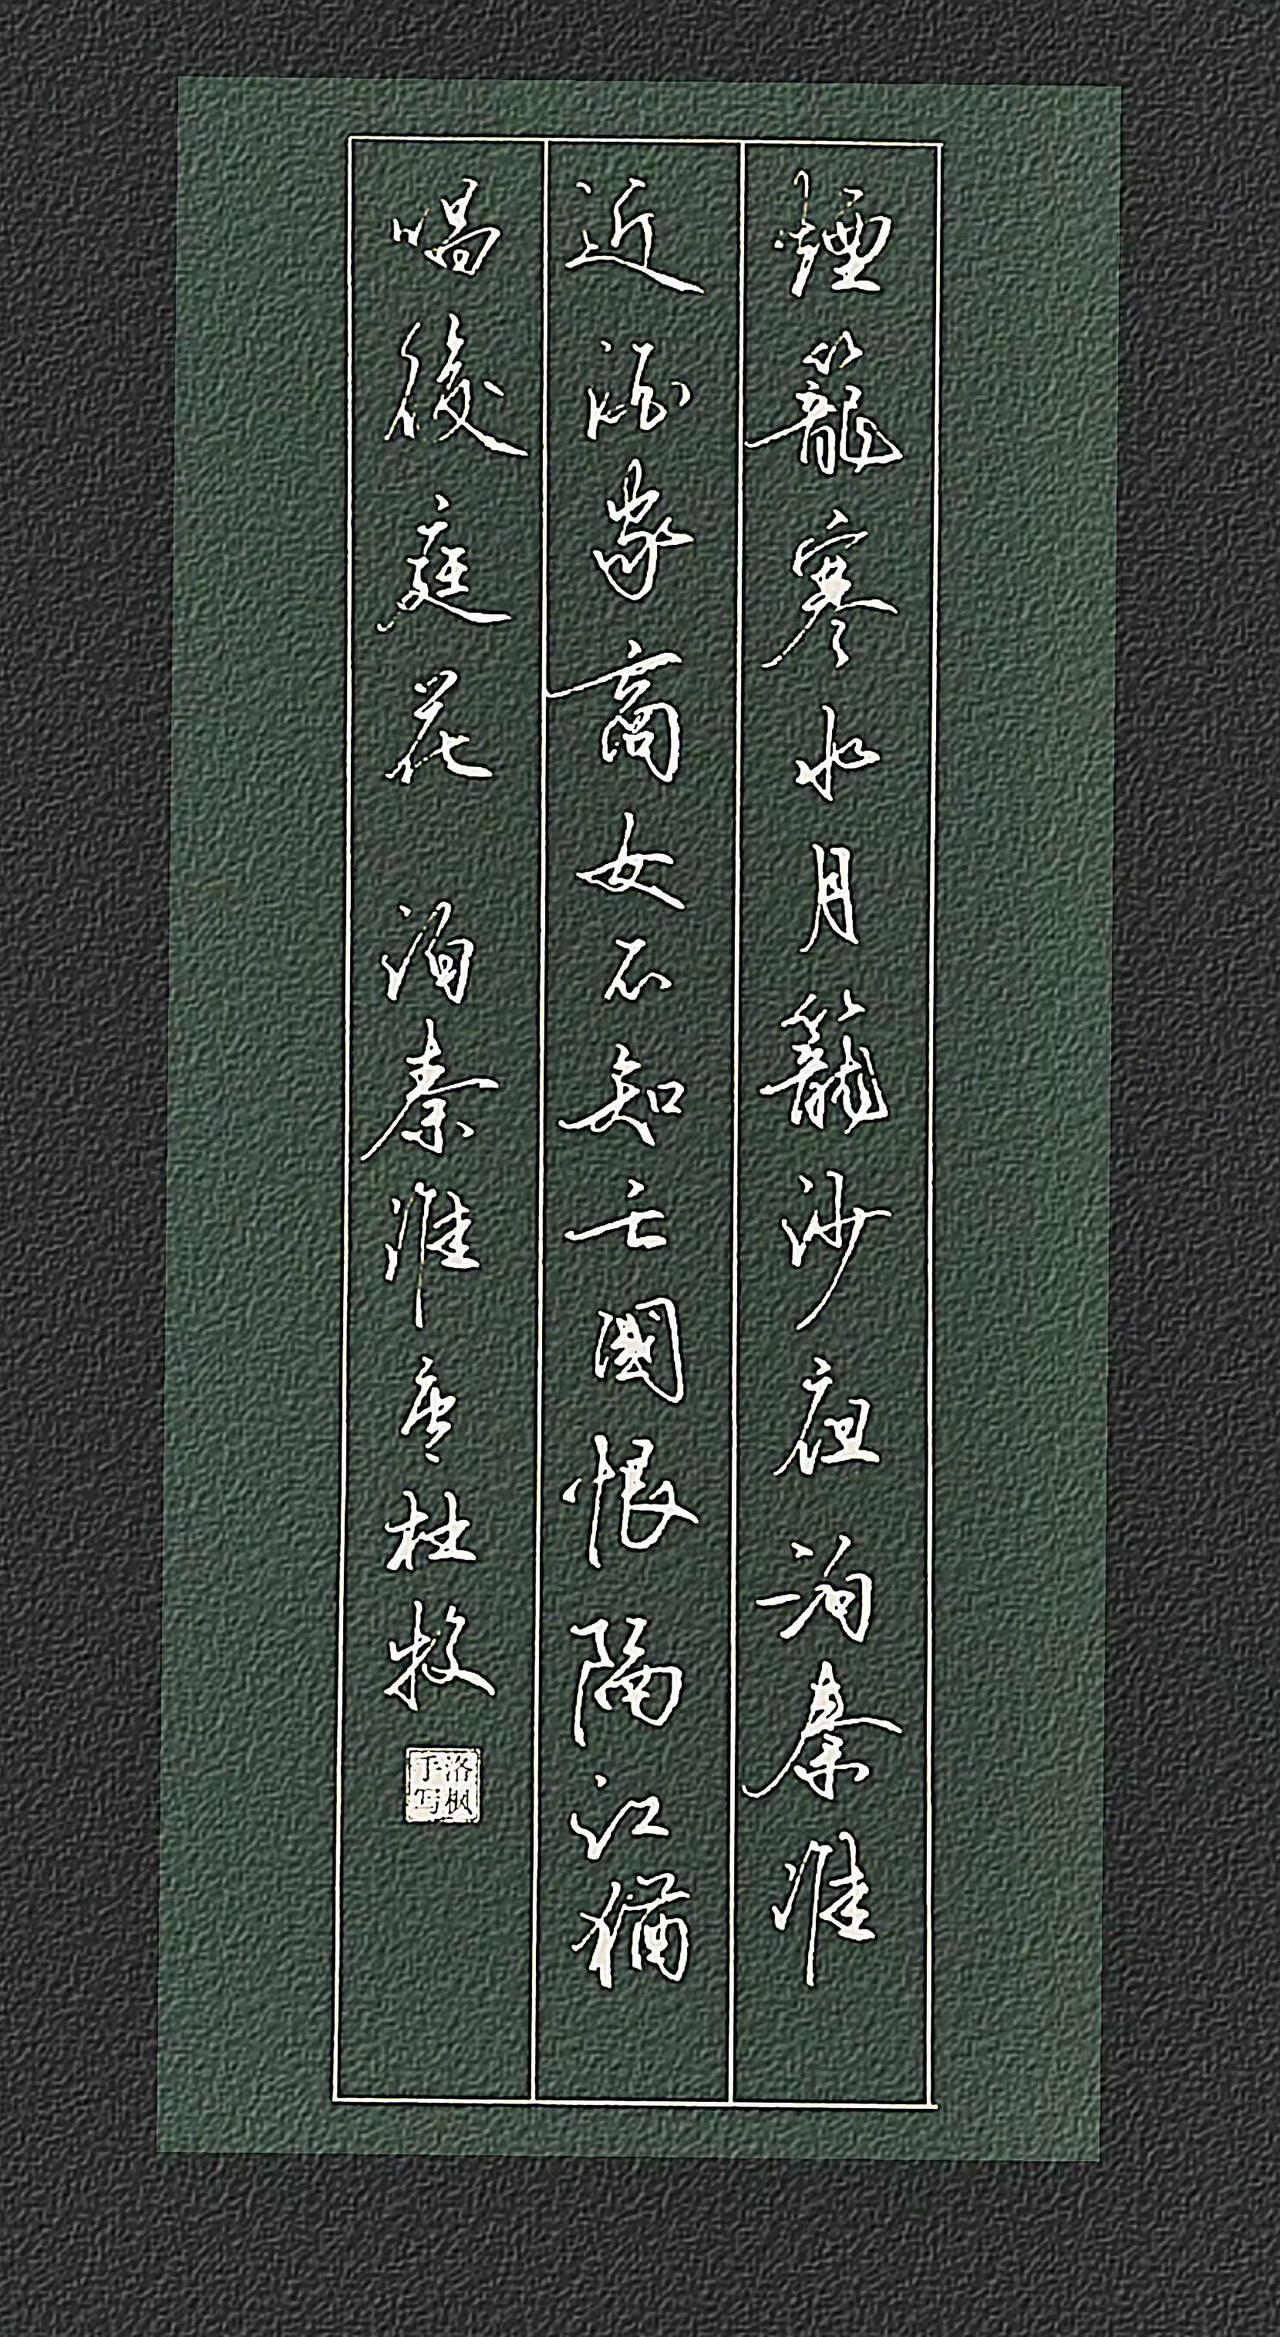 煙籠寒水月籠沙夜泊秦淮
近酒家商女不知亡國恨隔江猶
唱後庭花 泊秦淮唐杜牧
洛枫手写